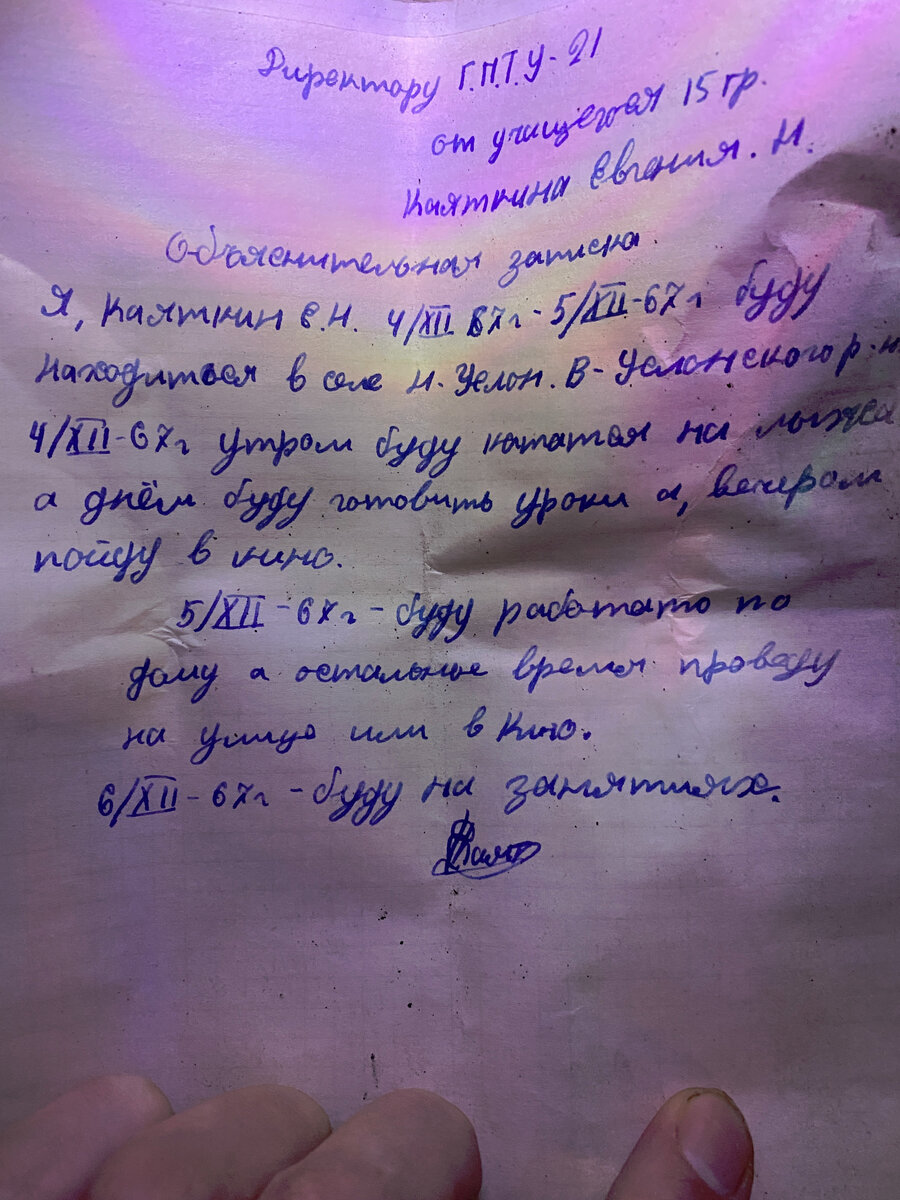 Директору Г.П.Т.У-21
от учащегося 15 гр.
Каяткина Евгения. Н.
Объяснительная записка.
Я, Каяткин Е.Н. 4/XII 67г - 5/XII-67г буду
находиться в селе Н-Услон. В-Услонского р-н
4/XII-67г утром буду кататся на лыжа
а днём буду готовить уроки а, вечером
пойду в кино.
5/XII-67г - буду работать по
дому а остальное время проведу
на улице или в кино.
6/XII-67г - буду на занятиях.
Каят